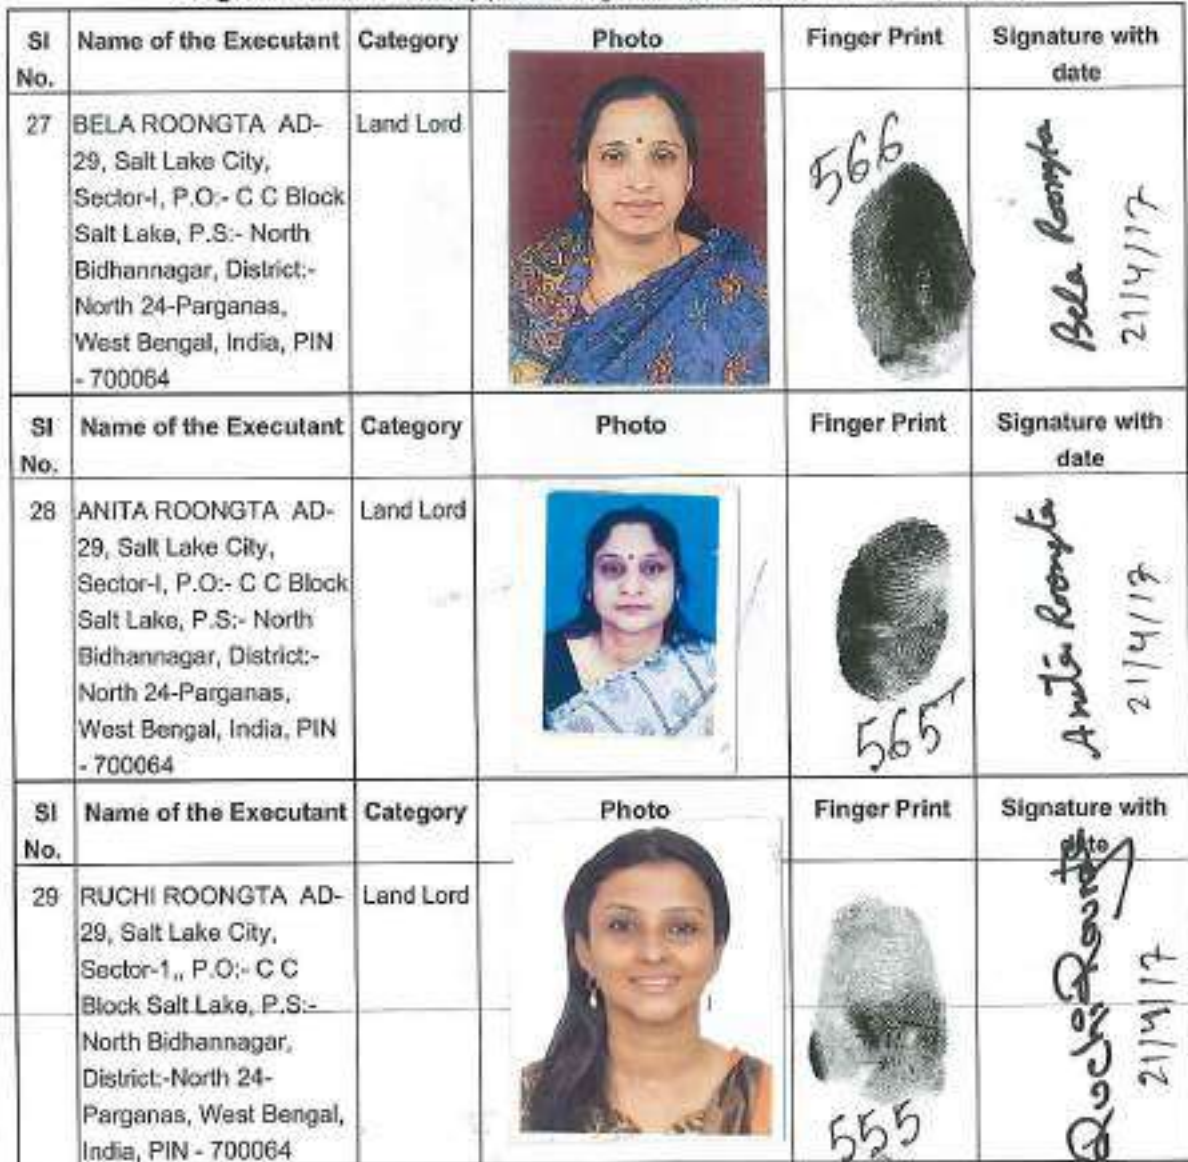 Sl No. | Name of the Executant | Category | Photo | Finger Print | Signature with date
27 | BELA ROONGTA AD-
29, Salt Lake City,
Sector-I, P.O:- C C Block
Salt Lake, P.S:- North
Bidhannagar, District:-
North 24-Parganas,
West Bengal, India, PIN
- 700064
Land Lord
566
Bela Roongta
21/4/17
Sl No. | Name of the Executant | Category | Photo | Finger Print | Signature with date
28 | ANITA ROONGTA AD-
29, Salt Lake City,
Sector-I, P.O:- C C Block
Salt Lake, P.S:- North
Bidhannagar, District:-
North 24-Parganas,
West Bengal, India, PIN
- 700064
Land Lord
565
Anita Roongta
21/4/17
Sl No. | Name of the Executant | Category | Photo | Finger Print | Signature with date
29 | RUCHI ROONGTA AD-
29, Salt Lake City,
Sector-1,, P.O:- C C
Block Salt Lake, P.S:-
North Bidhannagar,
District:-North 24-
Parganas, West Bengal,
India, PIN - 700064
Land Lord
555
Ruchi Roongta
21/4/17